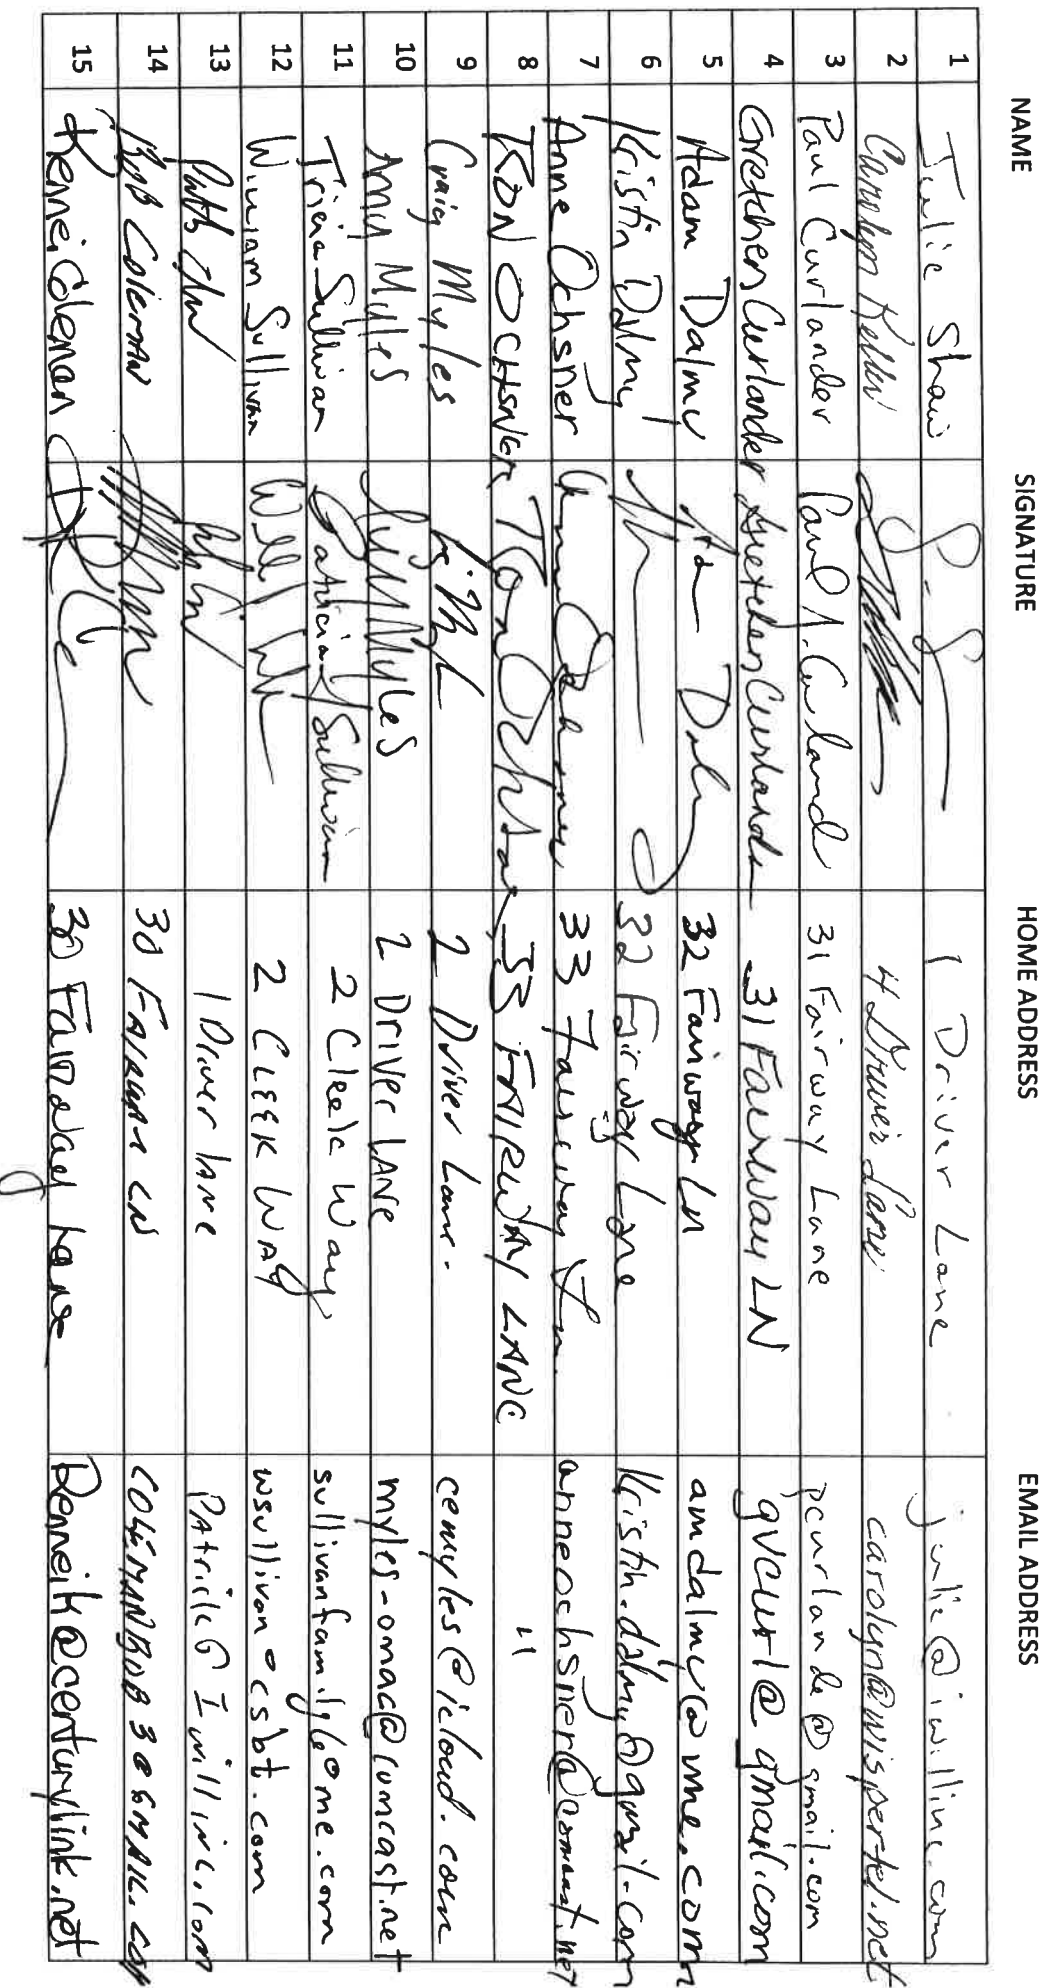 NAME SIGNATURE HOME ADDRESS EMAIL ADDRESS
1 Julie Shaw 1 Driver Lane julie@iwillinc.com
2 Carolyn Keller 4 Driver Lane carolyn@wispertel.net
3 Paul Curlander Paul A. Curland 31 Fairway Lane pcurlande@gmail.com
4 Gretchen Curlander Gretchen Curlander 31 Fairway LN gvcurl@gmail.com
5 Adam Dalmy 32 Fairway Ln amdalmy@me.com
6 Kristin Dalmy 32 Fairway Lane Kristin.dalmy@gmail.com
7 Anne Ochsner 33 Fairway Ln. anneochsner@comcast.net
8 RON OCHSNER 33 FAIRWAY LANE "
9 Craig Myles 2 Driver Lane. cemyles@icloud.com
10 Amy Myles Amy Myles 2 Driver LANE myles-omac@comcast.net
11 Tricia Sullivan Patricia Sullivan 2 Cleek Way sullivanfamily6@me.com
12 William Sullivan 2 CLEEK WAY wsullivan@csbt.com
13 1 Driver lane Patrick@Iwillinc.com
14 BOB COLEMAN 30 FAIRWAY LN COLEMANBOB30@GMAIL.COM
15 Rennei Coleman 30 Fairway Lane Renneik@centurylink.net